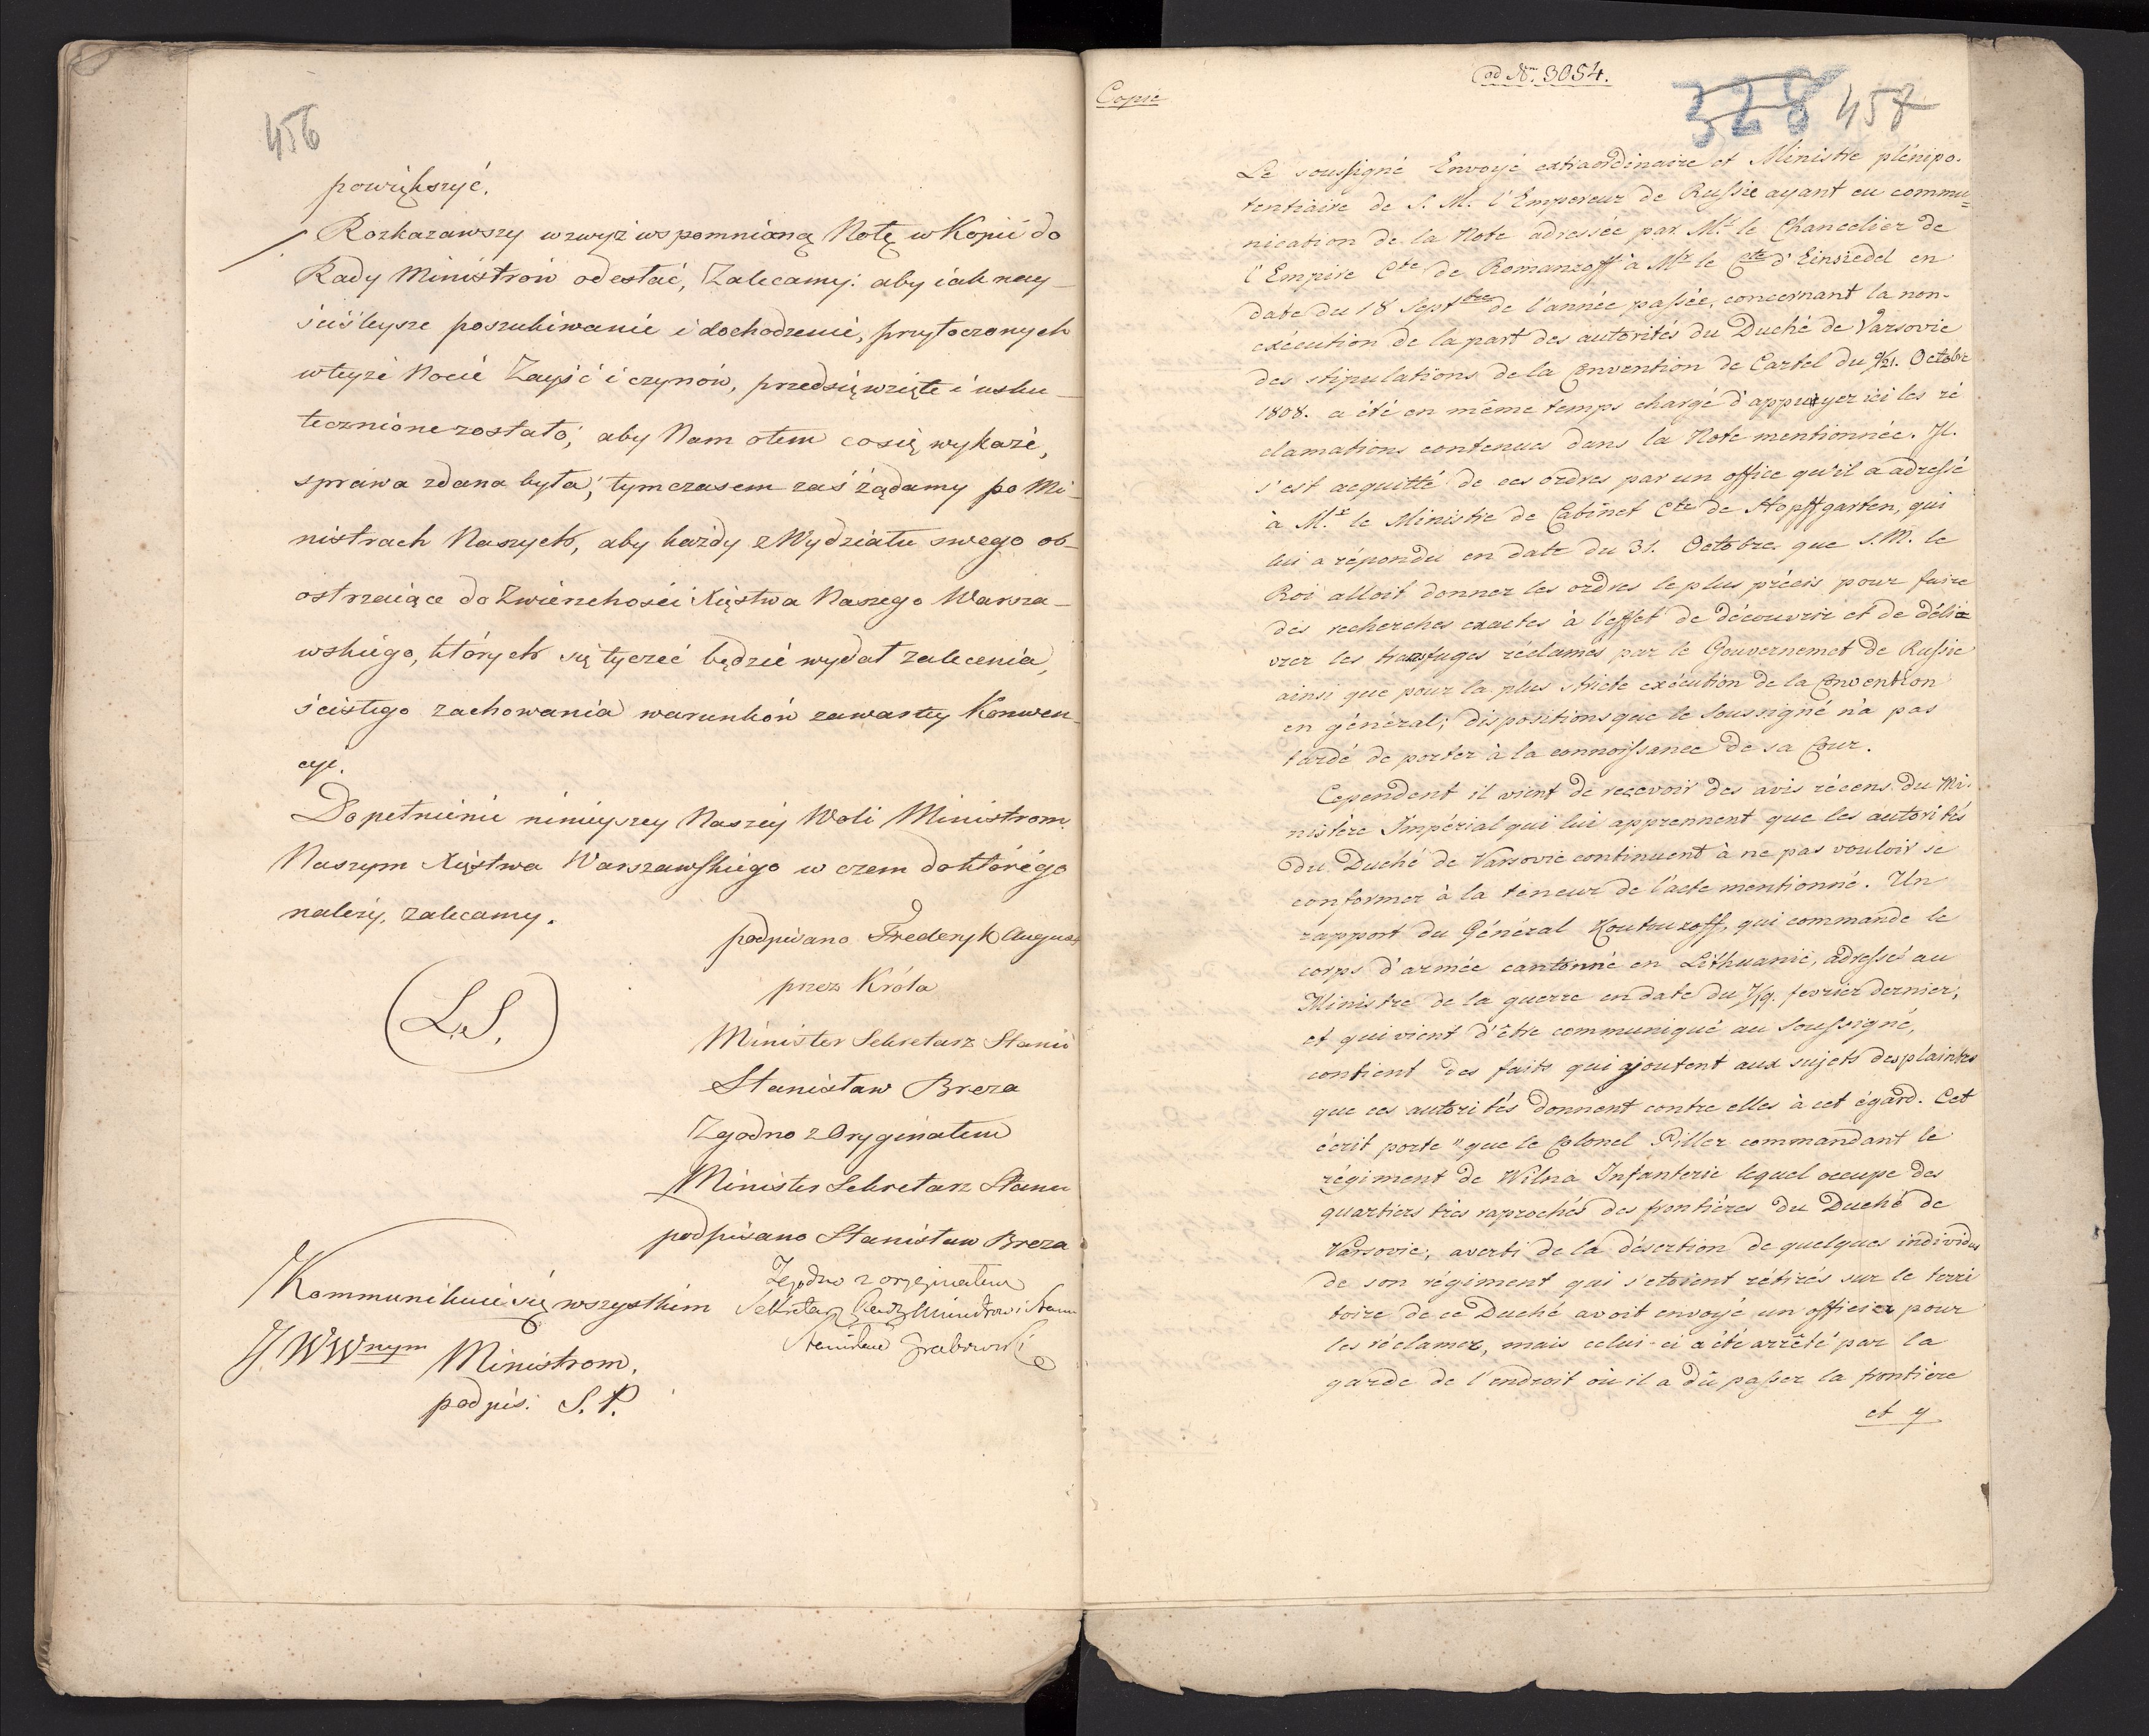 456
powiększyć.
Rozkazawszy wzwyż wspomnioną Notę w Kopii do
Rady Ministrów odesłać, Zalecamy: aby iak nay-
ściśleysze poszukiwanie i dochodzenie, przytoczonych
w teyże Nocie Zayść i czynów, przedsięwzięte i usku-
tecznione zostało; aby Nam o tem co się wykaże,
sprawa zdana była; tymczasem zaś żądamy po Mi-
nistrach Naszych, aby każdy z Wydziału swego ob-
ostrzaiące do Zwierzchości Xięstwa Naszego Warsza-
wskiego, których się tyczeć będzie wydał zalecenia,
ścisłego zachowania warunków zawartey Konwen-
cyi.
Dopełnienie ninieyszey Naszey Woli Ministrom
Naszym Xięstwa Warszawskiego w czem do którego
należy, zalecamy.
podpisano Frederyk August
przez Króla
(L.S.)
Minister Sekretarz Stanu
Stanisław Breza
Zgodno z Oryginałem
Minister Sekretarz Stanu
podpisano Stanisław Breza
Zgodno z oryginałem
Kommunikuie się wszystkim
Sekretarz Rady Ministrow i Stanu
J. WWnym Ministrom,
Stanisław Grabowski
podpis: S. P.
Copie
ad Nm. 3054.
328 457
Le soussigné Envoyé extraordinaire et Ministre plénipo-
tentiaire de S. M. l'Empereur de Russie ayant eu commu=
nication de la Note adressée par Mr le Chancelier de
l'Empire Cte de Romanzoff à Mr le Cte d'Einsiedel en
date du 18 Septbre de l'année passée, concernant la non-
exécution de la part des autorités du Duché de Varsovie
des stipulations de la Convention de Cartel du 9/21. Octobr
1808. a été en même temps chargé d'appuyer ici les ré
clamations contenues dans la Note mentionnée. Il
s'est acquitté de ces ordres par un office qu'il a adressé
à Mr le Ministre de Cabinet Cte de Hopffgarten, qui
lui a répondu en date du 31. Octobre que S. M. le
Roi alloit donner les ordres le plus précis pour faire
des recherches exactes à l'effet de découvrir et de déli-
vrer les transfuges réclamés par le Gouvernemet de Russie
ainsi que pour la plus stricte exécution de la Convention
en général; dispositions que le Soussigné n'a pas
tardé de porter à la connoissance de sa Cour.
Cependent il vient de recevoir des avis récens du Mi-
nistère Impérial qui lui apprennent que les autorités
du Duché de Varsovie continuent à ne pas vouloir se
conformer à la téneur de l'acte mentionné. Un
rapport du Général Koutouzoff, qui commande le
corps d'armée cantonné en Lithuanie, adressé au
Ministre de la guerre en date du 7/19. fevrier dernier,
et qui vient d'être communiqué au Soussigné,
contient des faits qui ajoutent aux sujets des plaintes
que ces autorités donnent contre elles à cet égard. Cet
écrit porte "que le Colonel Piller commandant le
régiment de Wilna Infanterie lequel occupe des
quartiers très raprochés des frontières du Duché de
Varsovie, averti de la désertion de quelques individus
de son régiment qui s'etoient rétirés sur le terri
toire de ce Duché avoit envoyé un officier pour
les réclamer, mais celui-ci a été arrêté par la
garde de l'endroit où il a dû passer la frontière
et y